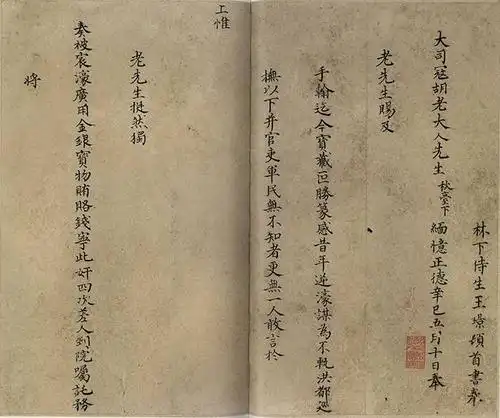 林下侍生王璟頓首書奉
大司寇胡老大人先生 秋臺下 緬憶正德辛巳五月十日奉
老先生賜及
手翰迄今寶藏叵勝篆感昔年逆濠謀為不軌洪都巡
撫以下并官吏軍民無不知者更無一人敢言於
上惟
老先生挺然獨
奏被宸濠廣用金銀寶物賄賂錢寧此奸四次差人到院囑託務
將